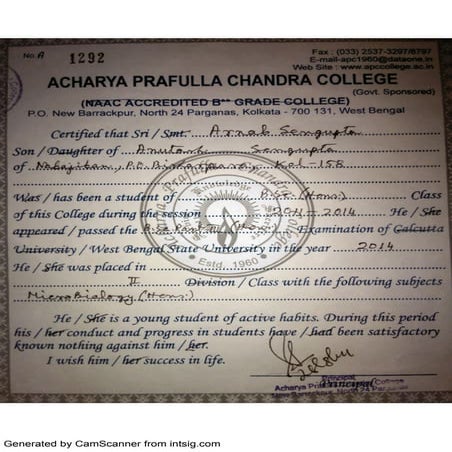 No. A 1292
Fax : (033) 2537-3297/8797
E-mail-apc1960@dataone.in
Web Site : www.apccollege.ac.in
ACHARYA PRAFULLA CHANDRA COLLEGE
(Govt. Sponsored)
(NAAC ACCREDITED B++ GRADE COLLEGE)
P.O. New Barrackpur, North 24 Parganas, Kolkata - 700 131, West Bengal
Certified that Sri / Smt. Arnab Sengupta
Son / Daughter of Sengupta
of P.O. Kol-158
Was / has been a student of B.Sc (Hons) Class
of this College during the session 2011-2014 He / She
appeared / passed the B.Sc (Hons) Examination of Calcutta
University / West Bengal State University in the year 2014
He / She was placed in
II Division / Class with the following subjects
MicroBiology (Hons)
He / She is a young student of active habits. During this period
his / her conduct and progress in students have / had been satisfactory
known nothing against him / her.
I wish him / her success in life.
Principal
Acharya Prafulla Chandra College
New Barrackpur, North 24 Parganas
Principal
Estd. 1960
Generated by CamScanner from intsig.com